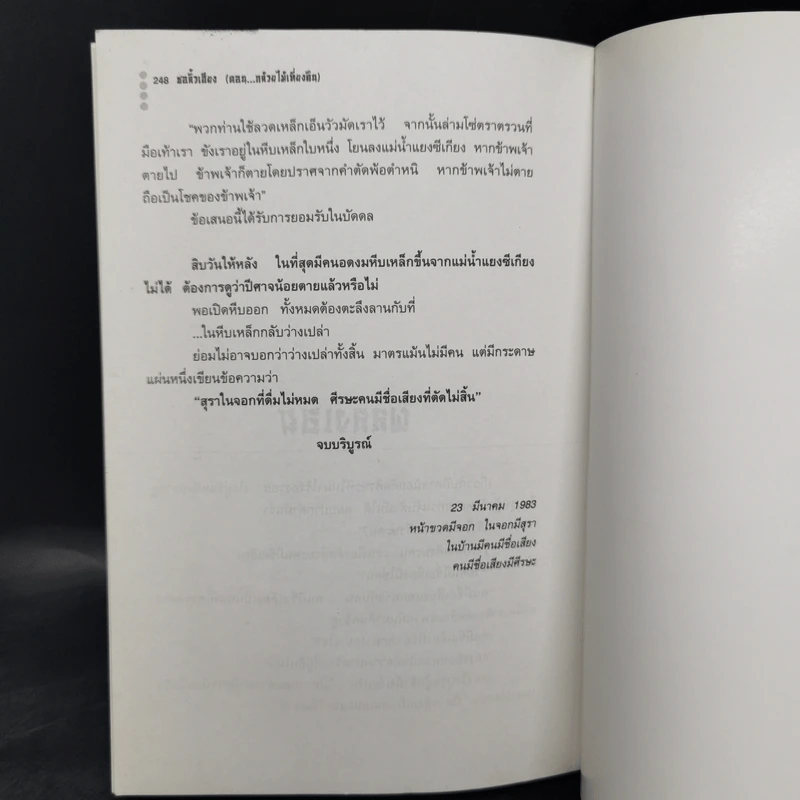 248 ชอลิ้วเฮียง (ตอน...กล้วยไม้เที่ยงคืน)
"พวกท่านใช้ลวดเหล็กเอ็นวัวมัดเราไว้ จากนั้นล่ามโซ่ตราตรวนที่
มือเท้าเรา ขังเราอยู่ในหีบเหล็กใบหนึ่ง โยนลงแม่น้ำแยงซีเกียง หากข้าพเจ้า
ตายไป ข้าพเจ้าก็ตายโดยปราศจากคำตัดพ้อตำหนิ หากข้าพเจ้าไม่ตาย
ถือเป็นโชคของข้าพเจ้า"
ข้อเสนอนี้ได้รับการยอมรับในบัดดล
สิบวันให้หลัง ในที่สุดมีคนอดงมหีบเหล็กขึ้นจากแม่น้ำแยงซีเกียง
ไม่ได้ ต้องการดูว่าปีศาจน้อยตายแล้วหรือไม่
พอเปิดหีบออก ทั้งหมดต้องตะลึงลานกับที่
...ในหีบเหล็กกลับว่างเปล่า
ย่อมไม่อาจบอกว่าว่างเปล่าทั้งสิ้น มาตรแม้นไม่มีคน แต่มีกระดาษ
แผ่นหนึ่งเขียนข้อความว่า
"สุราในจอกที่ดื่มไม่หมด ศีรษะคนมีชื่อเสียงที่ตัดไม่สิ้น"
จบบริบูรณ์
23 มีนาคม 1983
หน้าขวดมีจอก ในจอกมีสุรา
ในบ้านมีคนมีชื่อเสียง
คนมีชื่อเสียงมีศีรษะ